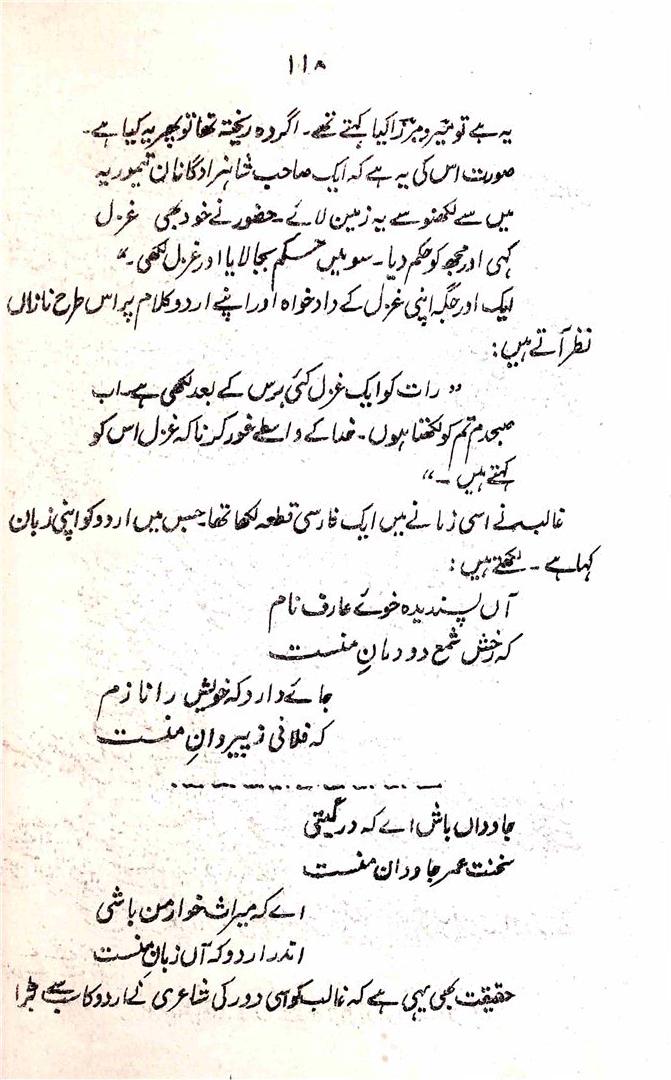 ۱۱۸
یہ ہے تو میر و مرزا کیا کہتے تھے۔ اگر وہ ریختہ تھا تو پھر یہ کیا ہے۔
صورت اس کی یہ ہے کہ ایک صاحب شاہزادگانِ تیموریہ
میں سے لکھنو سے یہ زمین لائے۔ حضور نے خود بھی غزل
کہی اور مجھ کو حکم دیا۔ سو میں حکم بجا لایا اور غزل لکھی۔"
ایک اور جگہ اپنی غزل کے داد خواہ اور اپنے اردو کلام پر اس طرح نازاں
نظر آتے ہیں:
"رات کو ایک غزل کئی برس کے بعد لکھی ہے۔ اب
صبحدم تم کو لکھتا ہوں۔ خدا کے واسطے غور کرنا کہ غزل اس کو
کہتے ہیں۔"
غالب نے اسی زمانے میں ایک فارسی قطعہ لکھا تھا۔ جس میں اردو کو اپنی زبان
کہا ہے۔ لکھتے ہیں:
آں پسندیدہ خوئے عارف نام
کہ رخش شمع دودمانِ منست
جائے دارد کہ خویش را نازم
کہ فلانی ز پیروانِ منست
جاوداں باش اے کہ در گیتی
سخنت عمر جاودان منست
اے کہ میراث خوار من باشی
اندر اردو کہ آں زبانِ منست
حقیقت بھی یہی ہے کہ غالب کو اسی دور کی شاعری نے اردو کا سب سے بڑا